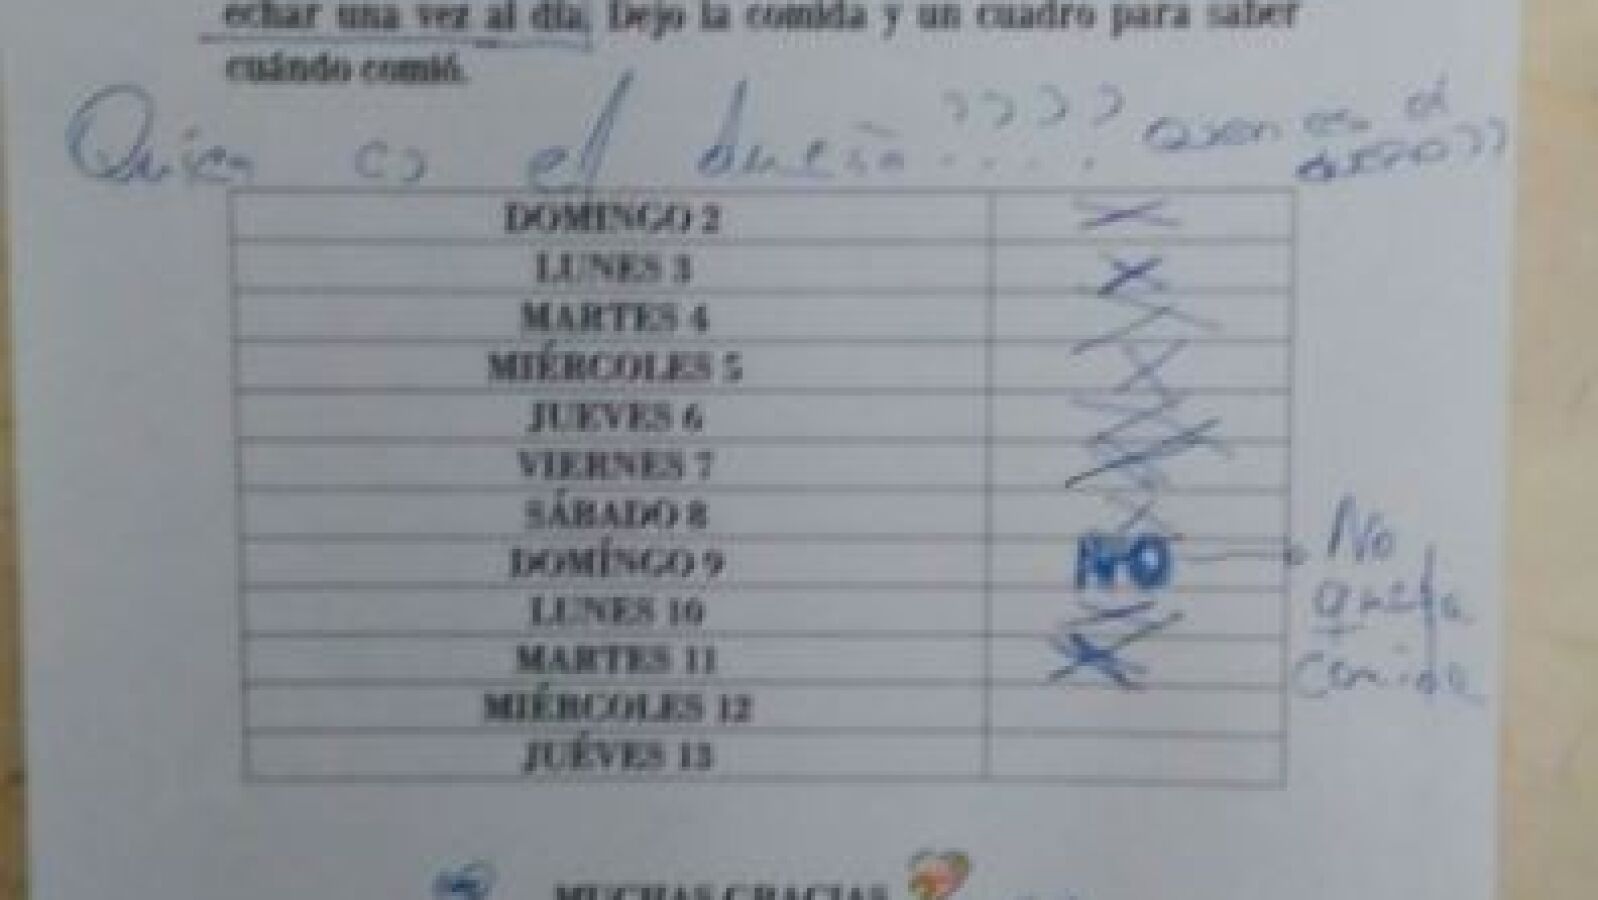 echar una vez al día. Dejo la comida y un cuadro para saber
cuándo comió.
Quien es el dueño ????
Quien es el
dueño??
DOMINGO 2 X
LUNES 3 X
MARTES 4 X
MIÉRCOLES 5 X
JUEVES 6 X
VIERNES 7 X
SÁBADO 8 X
DOMÍNGO 9 NO
No
quita
comida
LUNES 10 X
MARTES 11 X
MIÉRCOLES 12
JUÉVES 13
MUCHAS GRACIAS